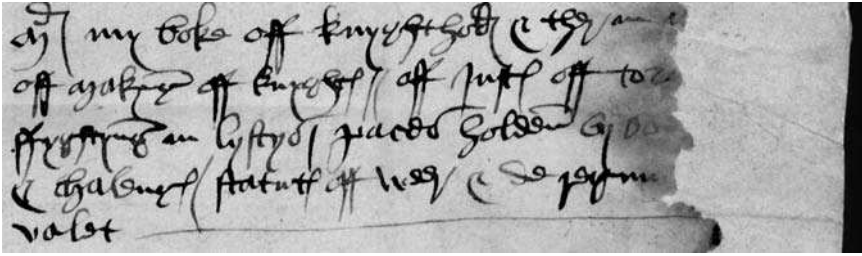 my boke off knyghthod & ther in
off makyng off knyghts / off justs off
ffyghtyng in lystys paces holden by
& chalengs / statuts off weer & de
valet